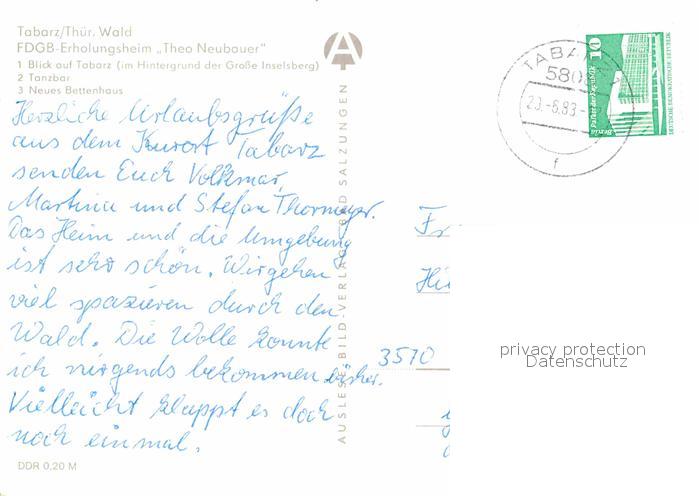 Tabarz/Thür. Wald
FDGB-Erholungsheim „Theo Neubauer"
1 Blick auf Tabarz (im Hintergrund der Große Inselsberg)
2 Tanzbar
3 Neues Bettenhaus
Herzliche Urlaubsgrüße
aus dem Kurort Tabarz
senden Euch Volkmar,
Martina und Stefan Thormeyer.
Das Heim und die Umgebung
ist sehr schön. Wir gehen
viel spazieren durch den
Wald. Die Wolle konnte
ich nirgends bekommen bisher.
Vielleicht klappt es doch
noch einmal.
DDR 0,20 M
AUSLESE-BILD-VERLAG BAD SALZUNGEN
TABARZ
580
-6.83-
f
10
Berlin, Palast der Republik
DEUTSCHE DEMOKRATISCHE REPUBLIK
Fr
Hi
3570
privacy protection
Datenschutz